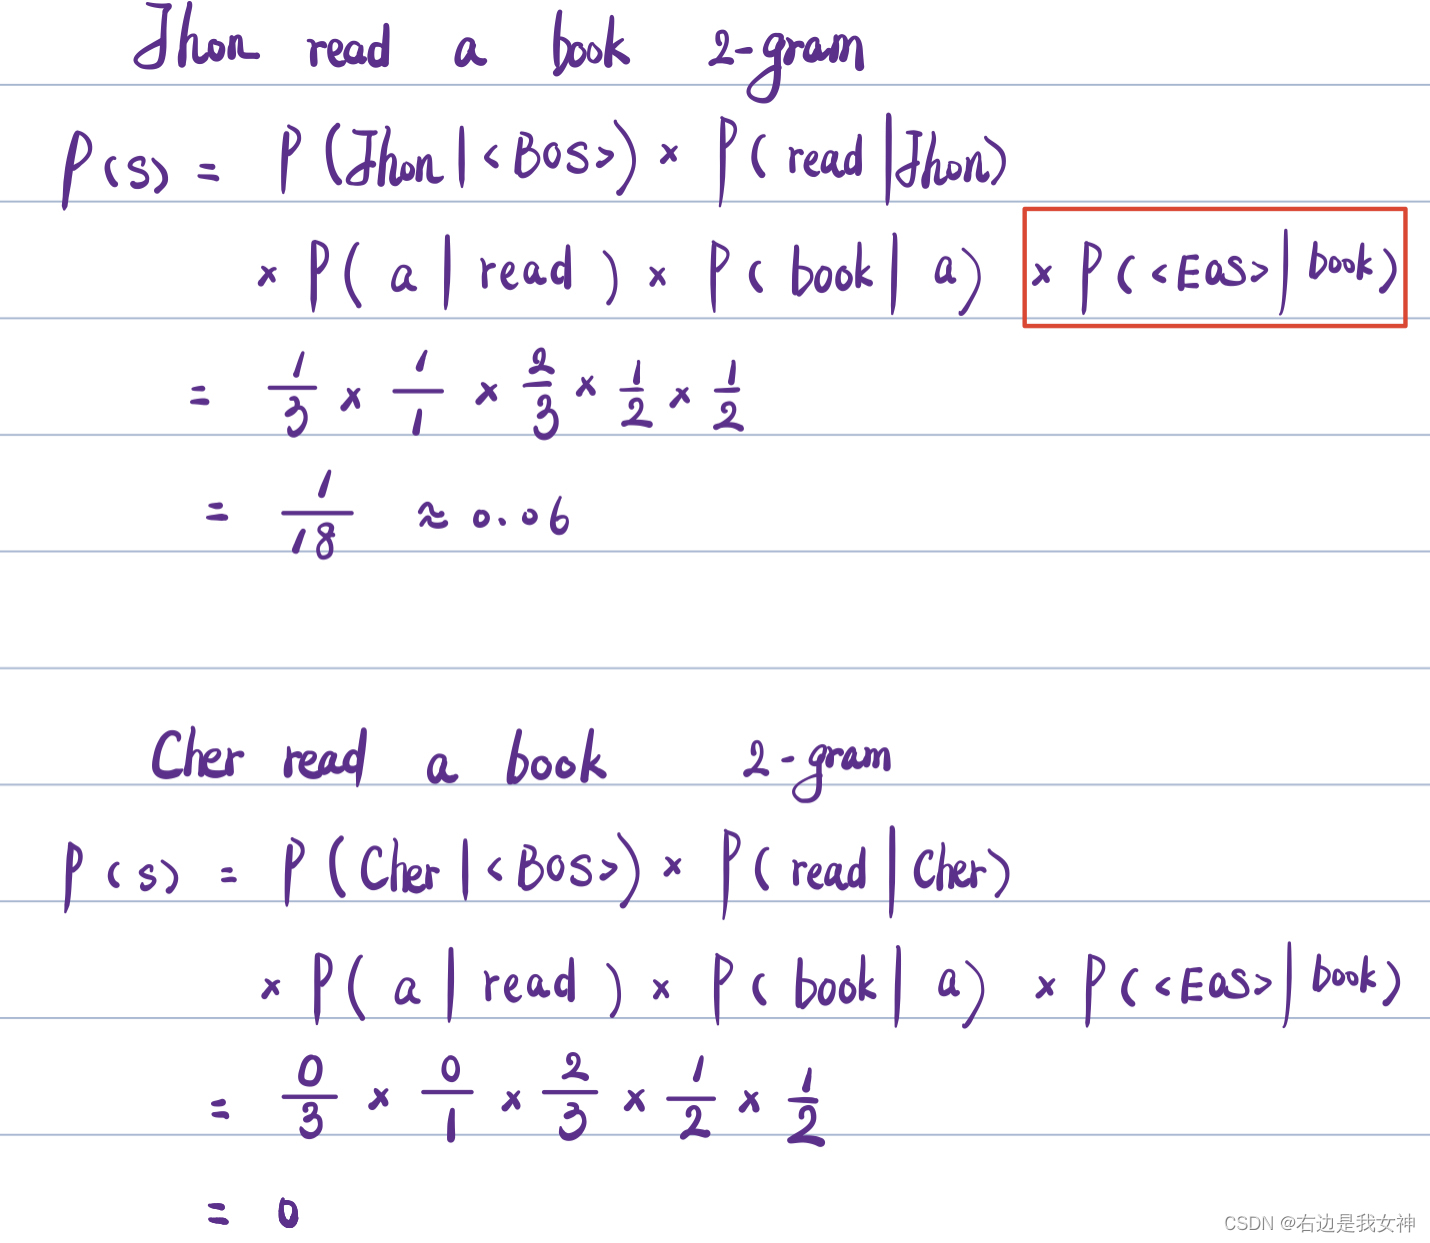 Jhon read a book 2-gram
P(s) = P(Jhon|<BOS>) × P(read|Jhon)
× P(a|read) × P(book|a) × P(<EOS>|book)
= 1/3 × 1/1 × 2/3 × 1/2 × 1/2
= 1/18 ≈ 0.06
Cher read a book 2-gram
P(s) = P(Cher|<BOS>) × P(read|Cher)
× P(a|read) × P(book|a) × P(<EOS>|book)
= 0/3 × 0/1 × 2/3 × 1/2 × 1/2
= 0
CSDN @右边是我女神